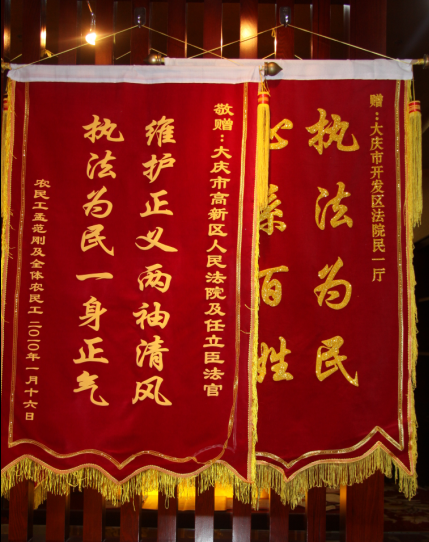 敬赠：大庆市高新区人民法院及任立臣法官
维护正义两袖清风
执法为民一身正气
农民工孟范刚及全体农民工 二〇一〇年一月十六日
赠：大庆市开发区法院民一厅
执法为民
心系百姓